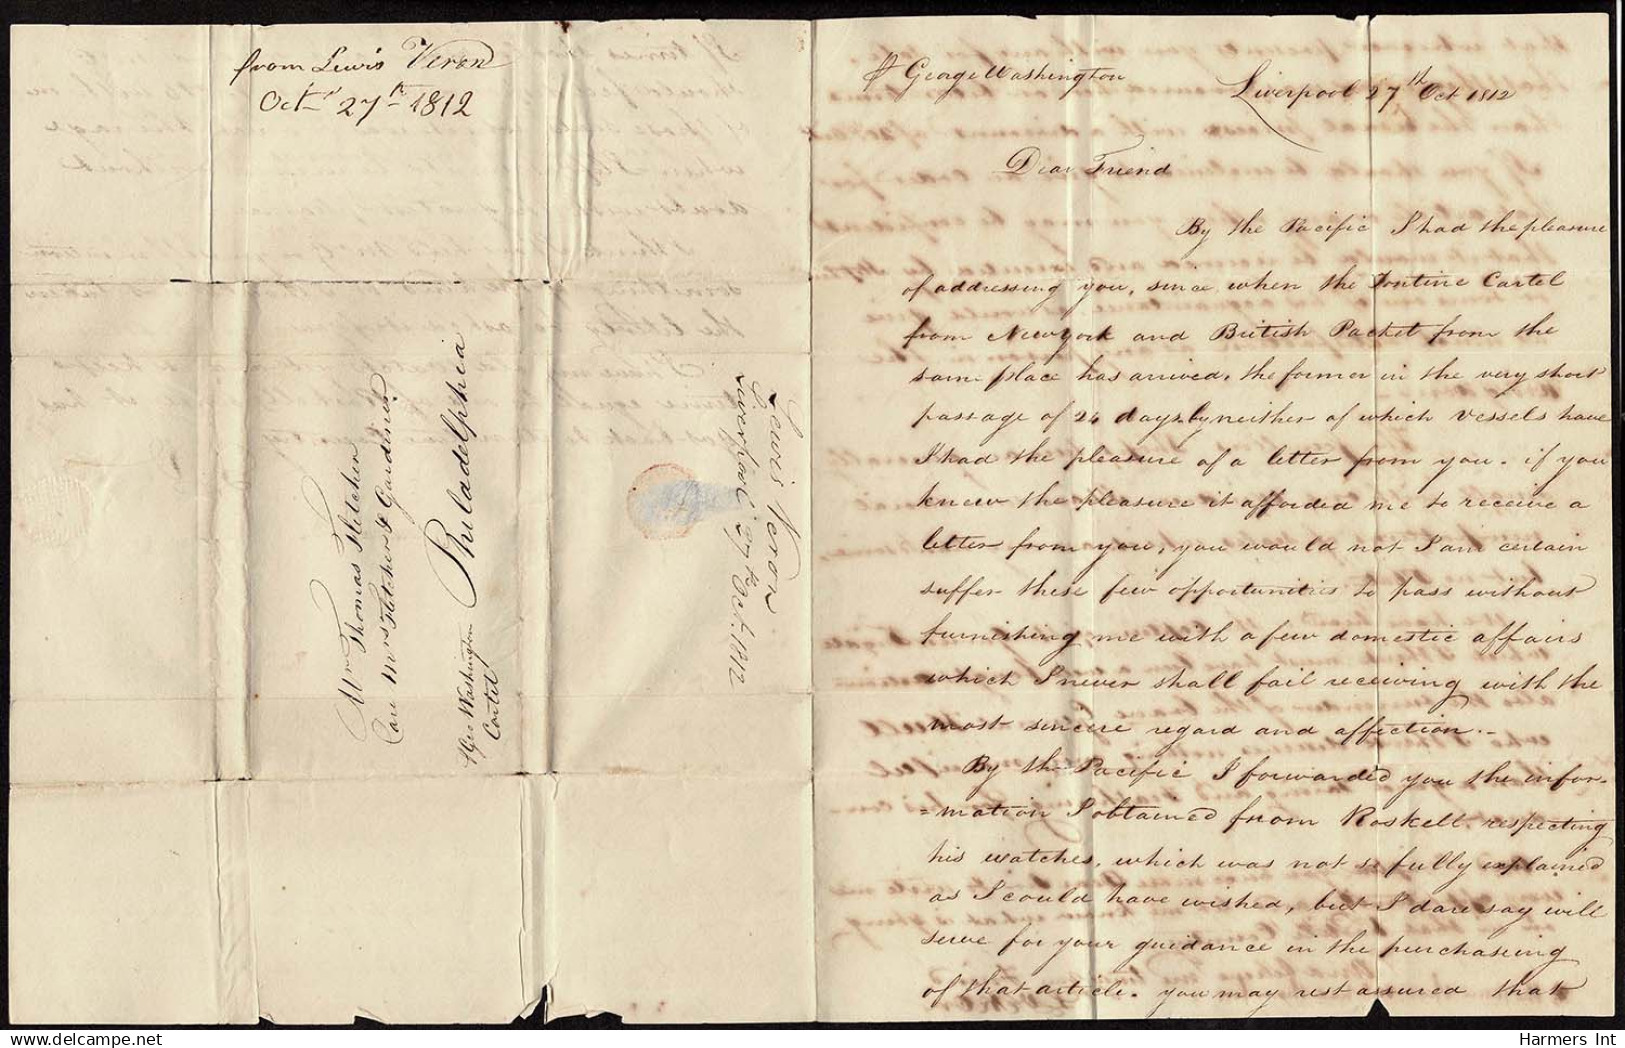 from Lewis Veron
Octr 27th 1812
Lewis Veron
Liverpool 27th Oct. 1812
Mr Thomas Fletcher
Care Mrs Fletcher & Gardiner
Philadelphia
Geo Washington
Cartel
George Washington
Liverpool 27th Oct 1812
Dear Friend
By the Pacific I had the pleasure
of addressing you, since when the Tontine Cartel
from New york and British Packet from the
same place has arrived, the former in the very short
passage of 24 days, by neither of which vessels have
I had the pleasure of a letter from you. if you
knew the pleasure it afforded me to receive a
letter from you, you would not I am certain
suffer these few opportunities to pass without
furnishing me with a few domestic affairs
which I never shall fail receiving with the
most sincere regard and affection.-
By the Pacific I forwarded you the infor-
=mation I obtained from Roskell respecting
his watches, which was not so fully explained
as I could have wished, but I dare say will
serve for your guidance in the purchasing
of that article. you may rest assured that
Harmers Int